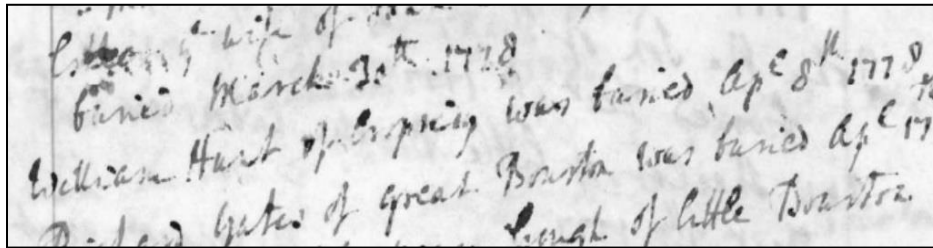 wife of
buried March 30th 1778
William Hunt of Cropredy was buried Apl 8th 1778
Richard Yates of great Bourton was buried Apl 17
Gough of little Bourton